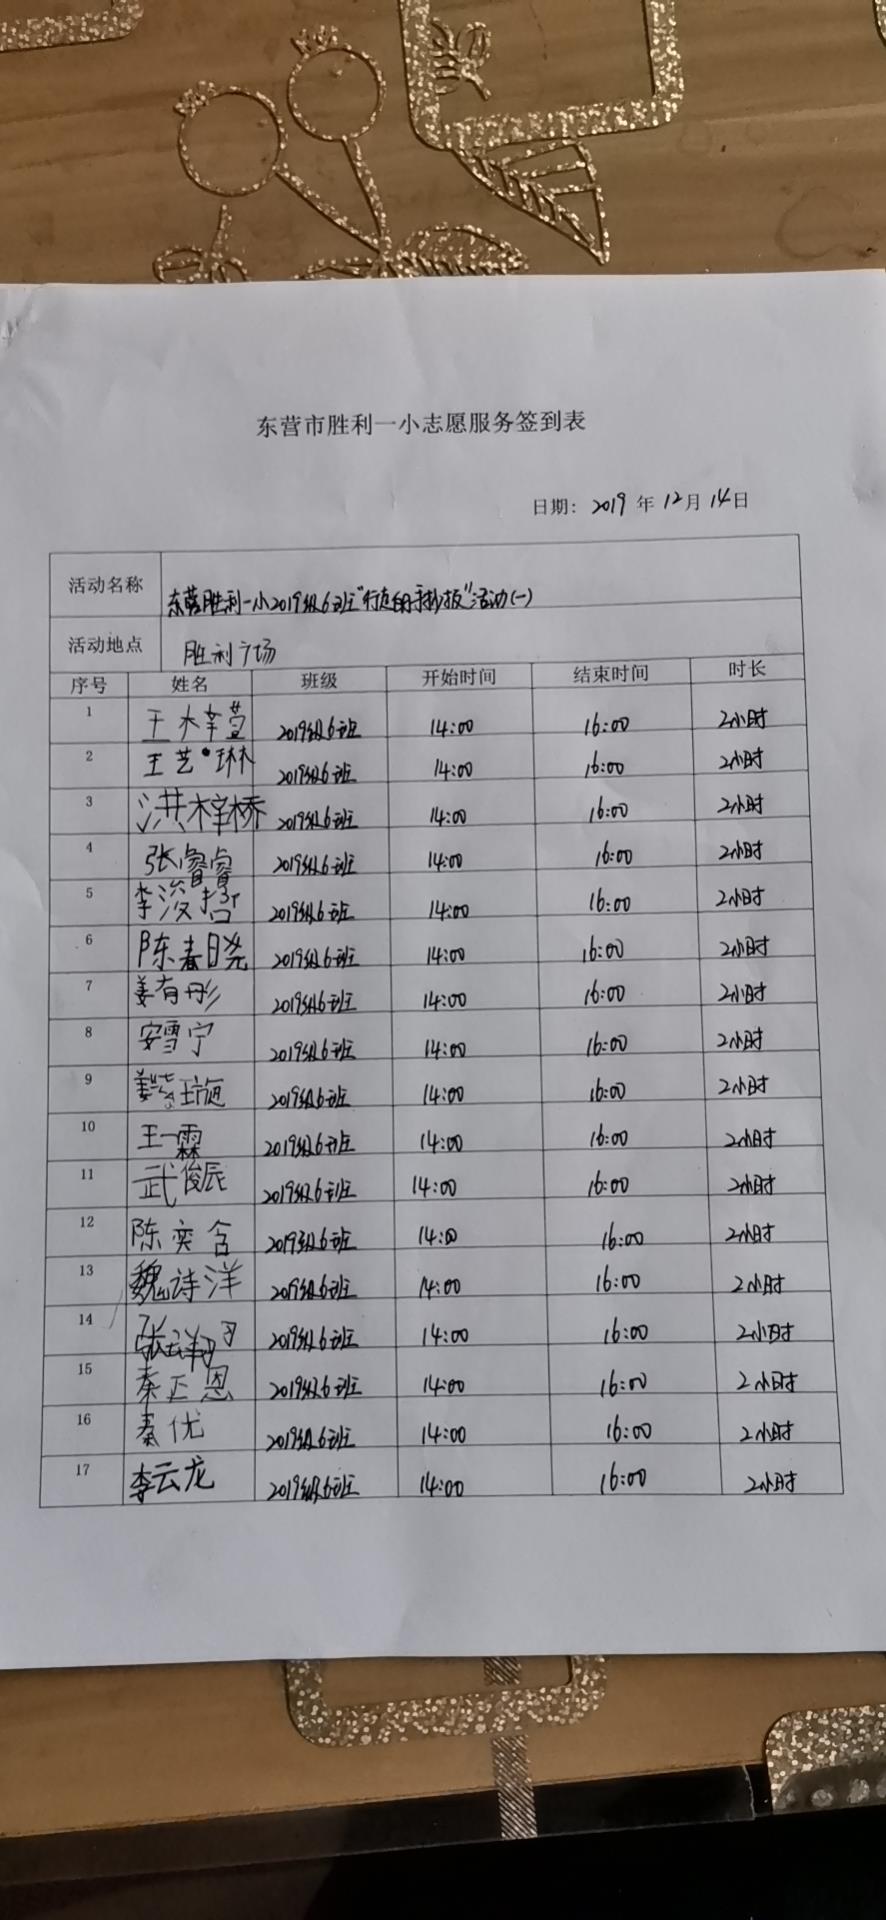 东营市胜利一小志愿服务签到表
日期: 2019 年 12 月 14 日
活动名称 东营胜利一小2019级6班"行走的手抄报"活动(一)
活动地点 胜利广场
序号 姓名 班级 开始时间 结束时间 时长
1 王梓萱 2019级6班 14:00 16:00 2小时
2 王艺琳 2019级6班 14:00 16:00 2小时
3 洪梓桥 2019级6班 14:00 16:00 2小时
4 张睿睿 2019级6班 14:00 16:00 2小时
5 李浚哲 2019级6班 14:00 16:00 2小时
6 陈春晓 2019级6班 14:00 16:00 2小时
7 姜有彤 2019级6班 14:00 16:00 2小时
8 安雪宁 2019级6班 14:00 16:00 2小时
9 2019级6班 14:00 16:00 2小时
10 王一霖 2019级6班 14:00 16:00 2小时
11 武俊辰 2019级6班 14:00 16:00 2小时
12 陈奕含 2019级6班 14:00 16:00 2小时
13 魏诗洋 2019级6班 14:00 16:00 2小时
14 2019级6班 14:00 16:00 2小时
15 秦正恩 2019级6班 14:00 16:00 2小时
16 秦优 2019级6班 14:00 16:00 2小时
17 李云龙 2019级6班 14:00 16:00 2小时